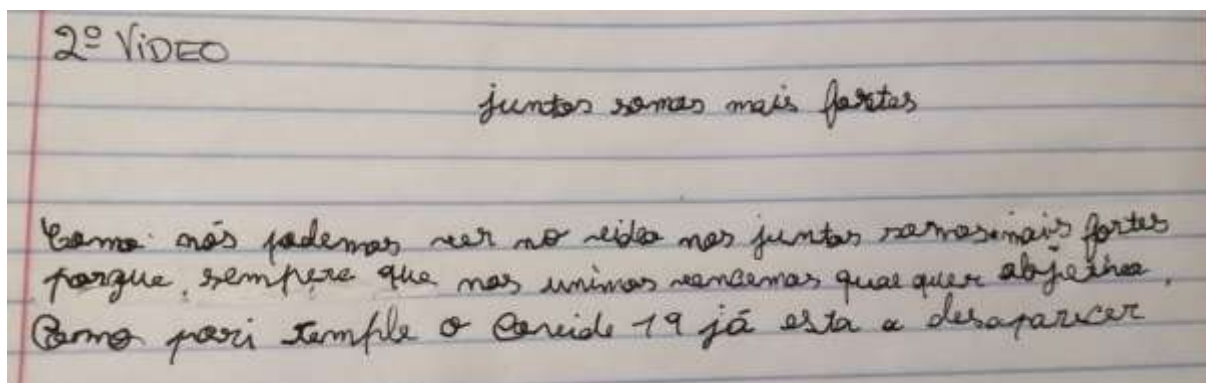 2º VÍDEO
juntos somos mais fortes
Como nós podemos ver no video nos juntos somos mais fortes
porque, sempere que nos unimos vencemos quae quer objetivo.
Como pori exemple o Coveide 19 já esta a desaparecer